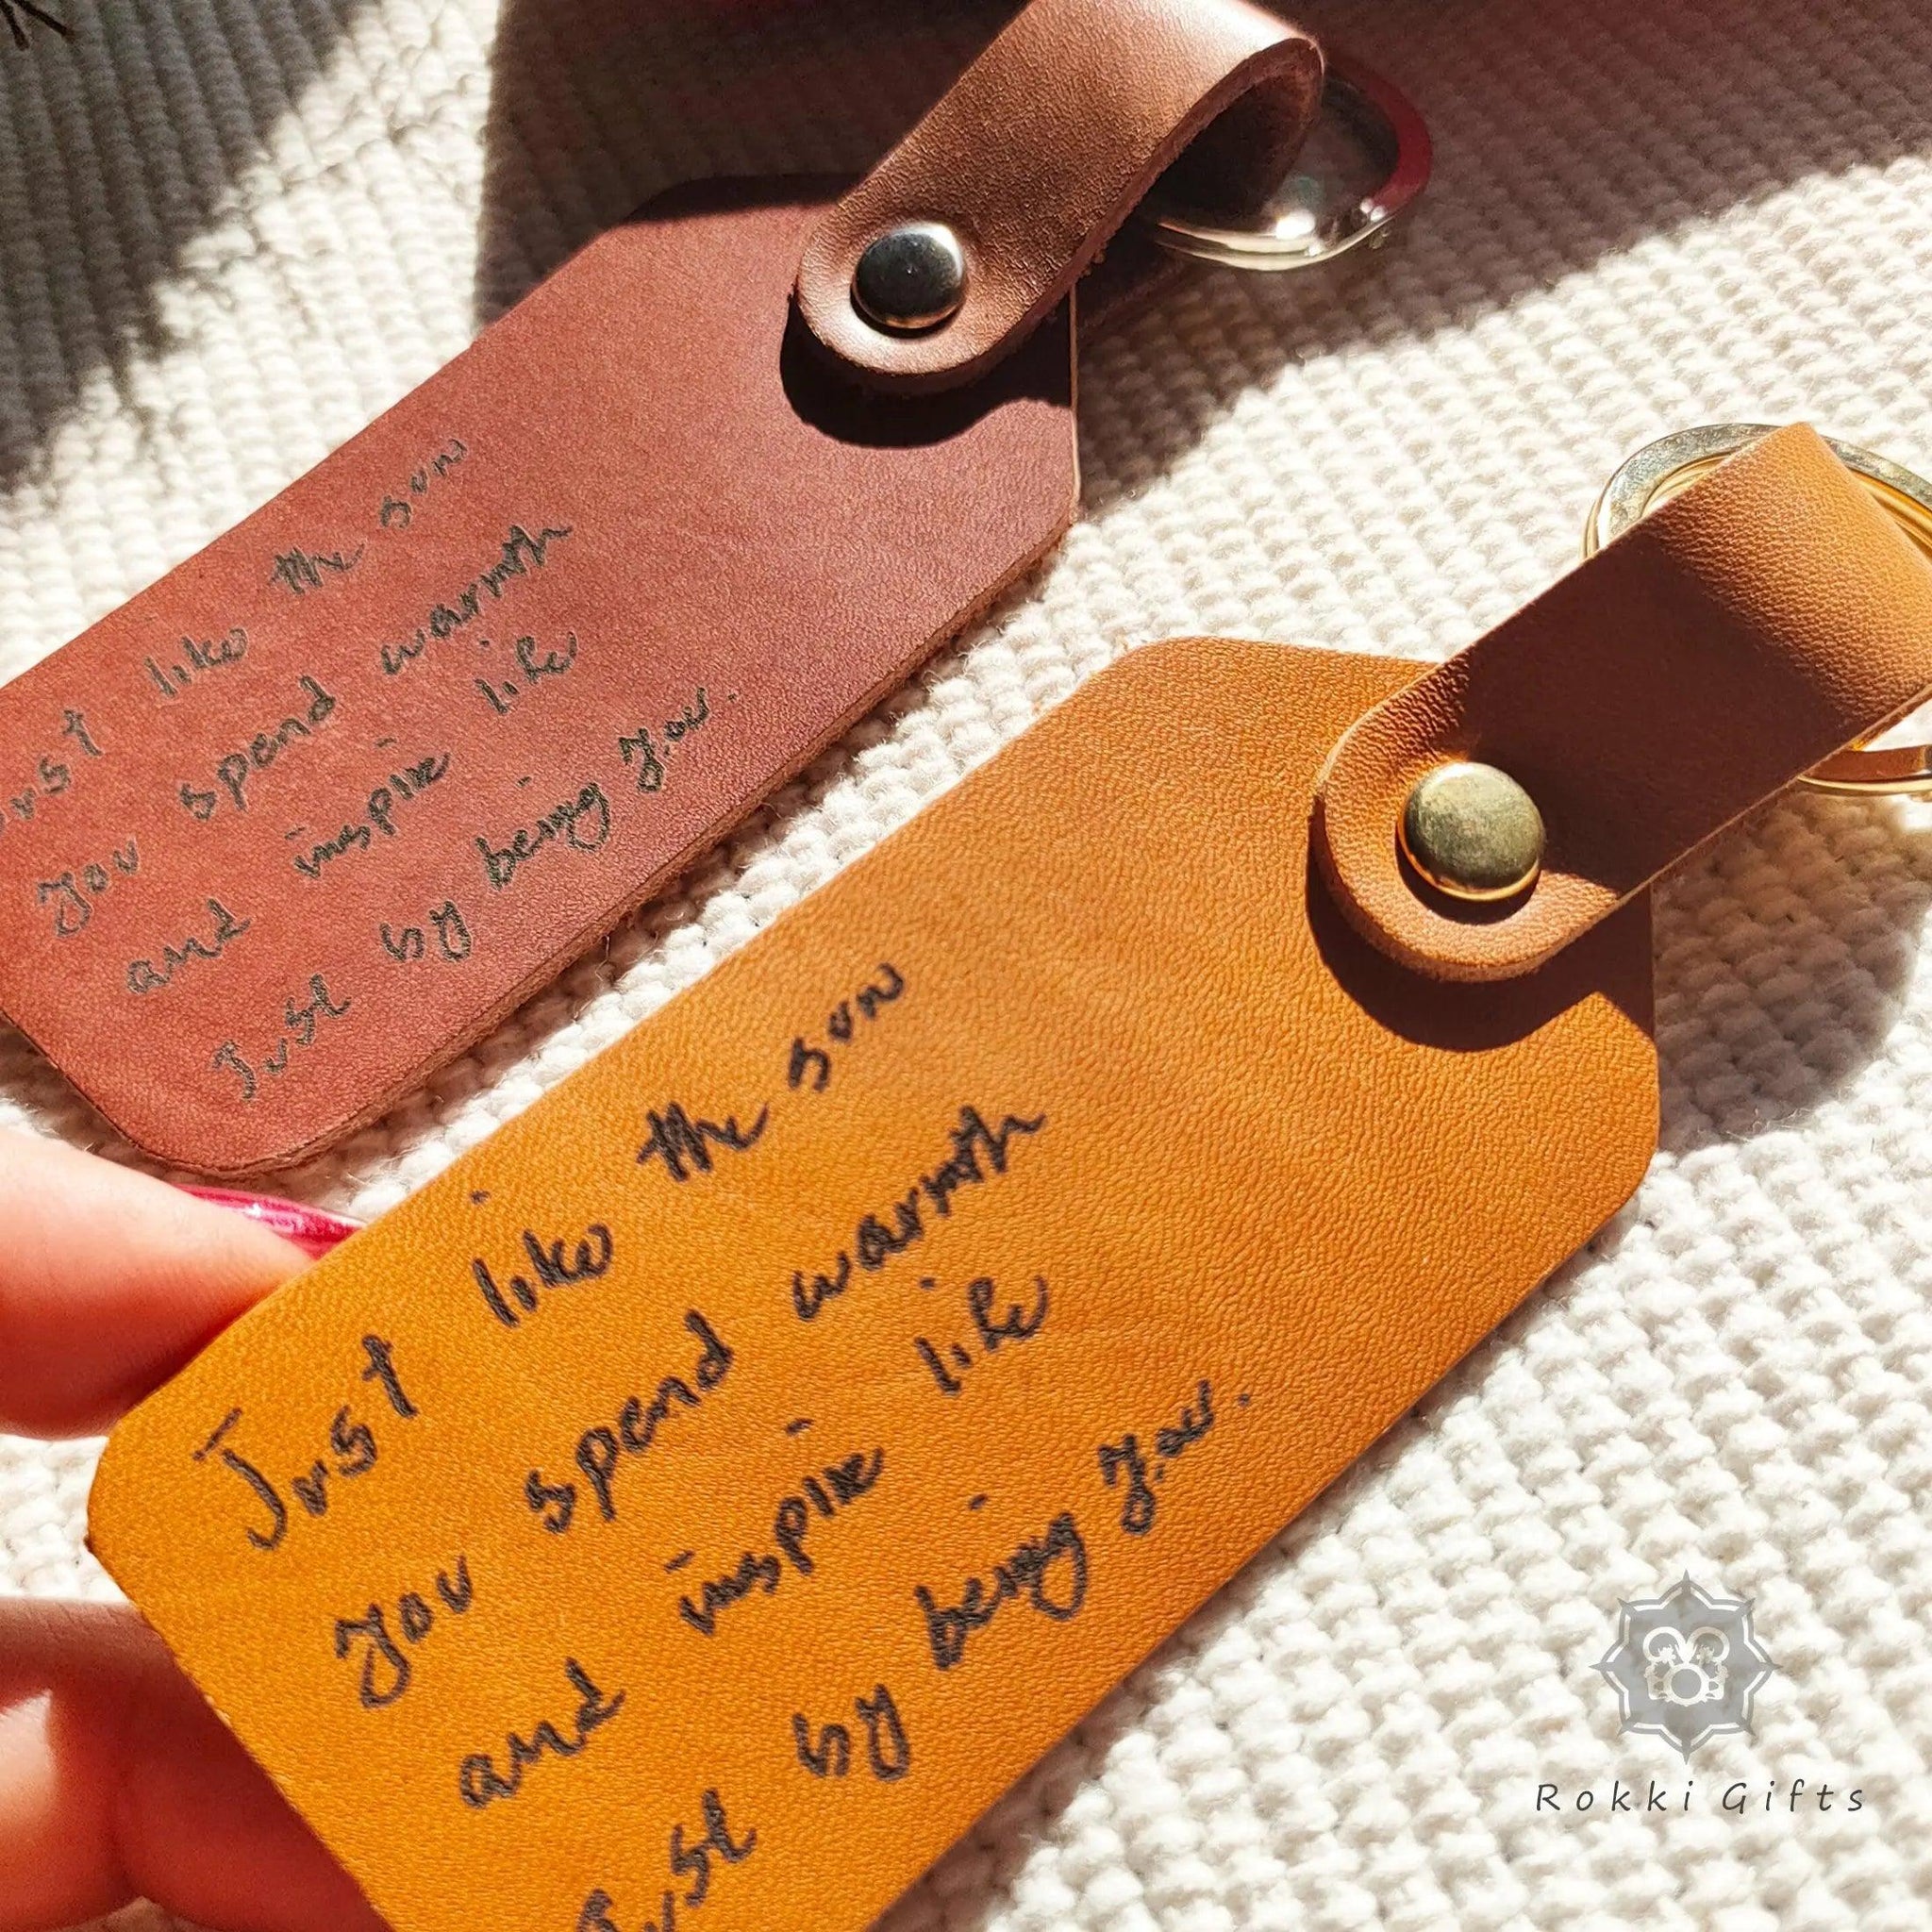 Just like the sun
you spend warmth
and inspire life
Just by being you.
Just like the sun
you spend warmth
and inspire life
Just by being you.
Rokki Gifts